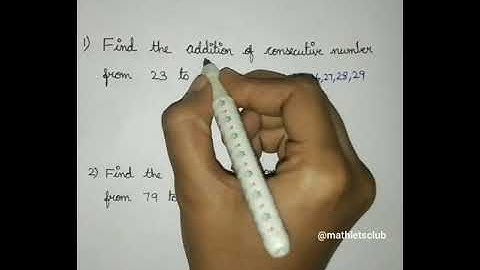 1) Find the addition of consecutive number
from 23 to ,27,28,29
2) Find the
from 79 to
@mathletsclub